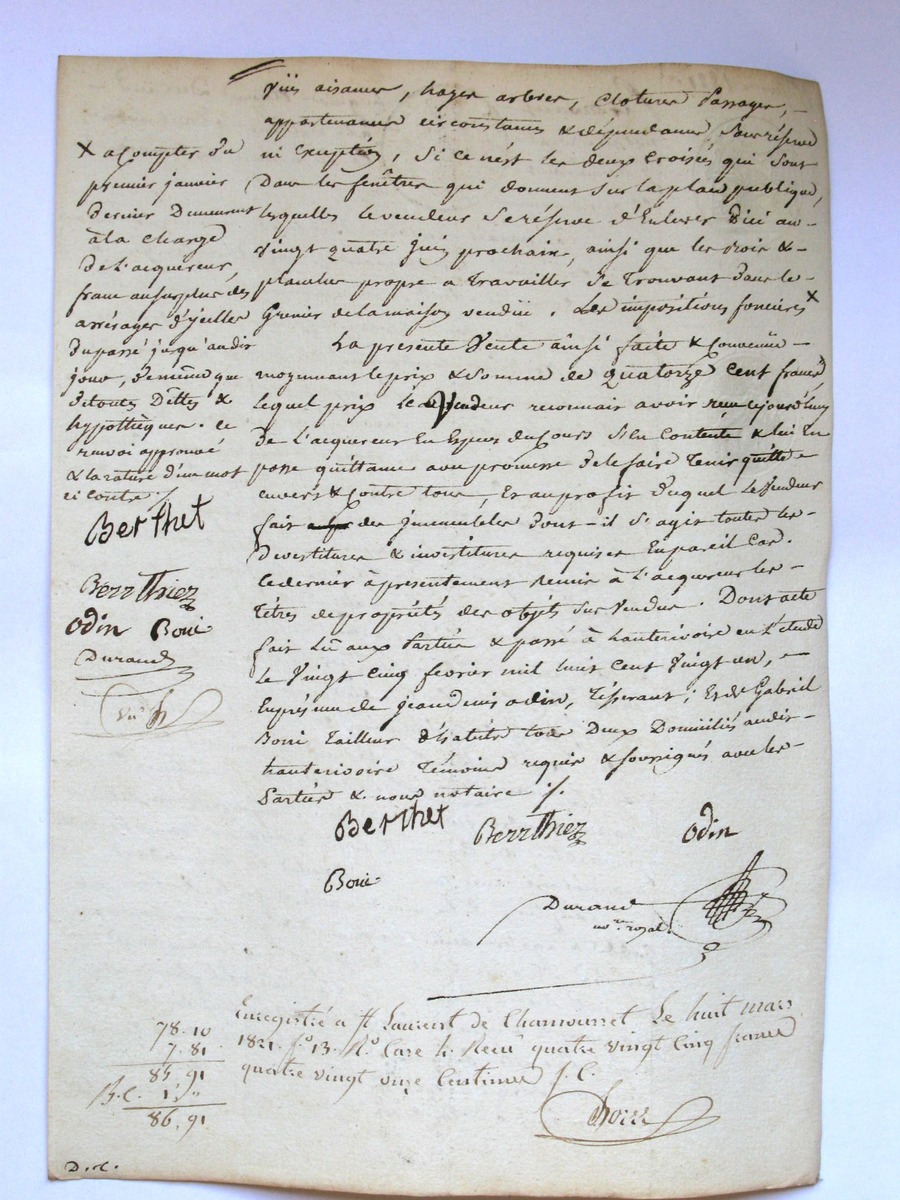 vüs aisances, hayes arbres, clotures passages, -
appartenances circonstances & dépendances, sans réserve
ni exceptés, si ce nést les deux croisées qui sont
dans les fenêtres qui donnent sur la place publique,
lesquelles le vendeur se réserve d'enlever d'ici au -
vingt quatre juin prochain, ainsi que les bois & -
planches propre a travailler se trouvant dans le -
Grenier de la maison vendüe. Les impositions foncieres X
La presente vente ainsi faite & convenüe -
moyennant le prix & somme de quatorze cent francs
lequel prix le vendeur reconnait avoir reçu ce jourd'huy
de l'acquereur en especes du cours s'en contente & lui en
passe quittance avec promesse de le faire tenir quitte -
envers & contre tous, et au profit duquel le vendeur
fait des immeubles dont-il s'agit toutes les -
devestitures & investitures requises en pareil cas.
ce dernier à presentement remis à l'acquereur les -
titres de propriétés des objets sus vendus. Dont acte
fait lû aux parties & passé à hauterivoire en l'étude
le vingt cinq fevrier mil huit cent vingt un, -
en présence de jean denis odin, tisserant; et de Gabriel
Boni tailleur d'habits tous deux domiciliés audit -
hauterivoire témoins requis & soussignés avec les -
parties & nous notaire ./.
X a compter du
premier janvier
dernier demeurent
à la charge
de l'acquereur,
franc au surplus des
arrérages d'ycelles
du passé jusqu'au dit
jour, de même que
de toutes dettes &
hyppothèques. ce
renvoi approuvé
& la rature d'un mot
ci contre ./.
Berthet
Berrthiez
odin Boni
Durand
Berthet Berrthiez odin
Boni
Durand
nore royal.
Enregistré a St Laurent de Chamousset le huit mars
1821. fo 13. Ro Case 4. Recu quatre vingt cinq francs
quatre vingt onze centimes
78. 10
7. 81
85. 91
1 "
86. 91